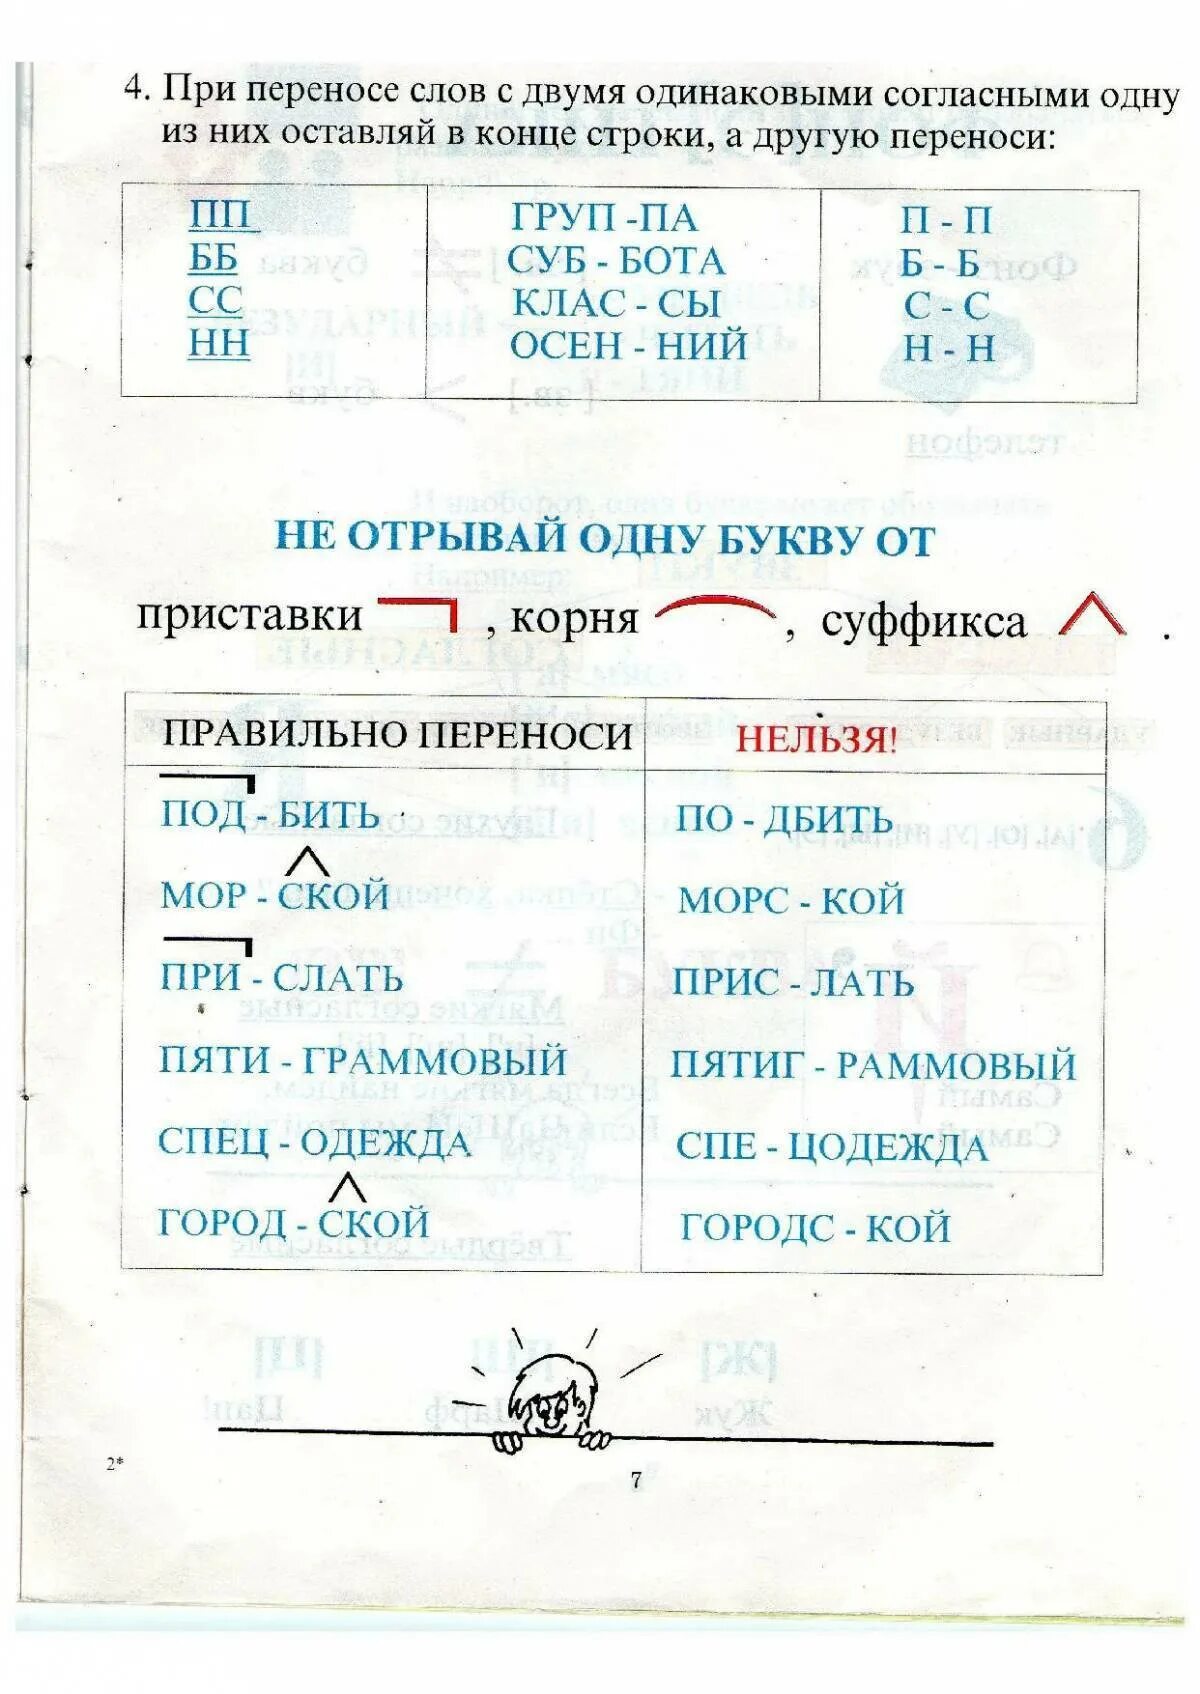 4. При переносе слов с двумя одинаковыми согласными одну
из них оставляй в конце строки, а другую переноси:
ПП ГРУП -ПА П - П
ББ СУБ - БОТА Б - Б
СС КЛАС - СЫ С - С
НН ОСЕН - НИЙ Н - Н
НЕ ОТРЫВАЙ ОДНУ БУКВУ ОТ
приставки , корня , суффикса .
ПРАВИЛЬНО ПЕРЕНОСИ НЕЛЬЗЯ!
ПОД - БИТЬ ПО - ДБИТЬ
МОР - СКОЙ МОРС - КОЙ
ПРИ - СЛАТЬ ПРИС - ЛАТЬ
ПЯТИ - ГРАММОВЫЙ ПЯТИГ - РАММОВЫЙ
СПЕЦ - ОДЕЖДА СПЕ - ЦОДЕЖДА
ГОРОД - СКОЙ ГОРОДС - КОЙ
2*
7